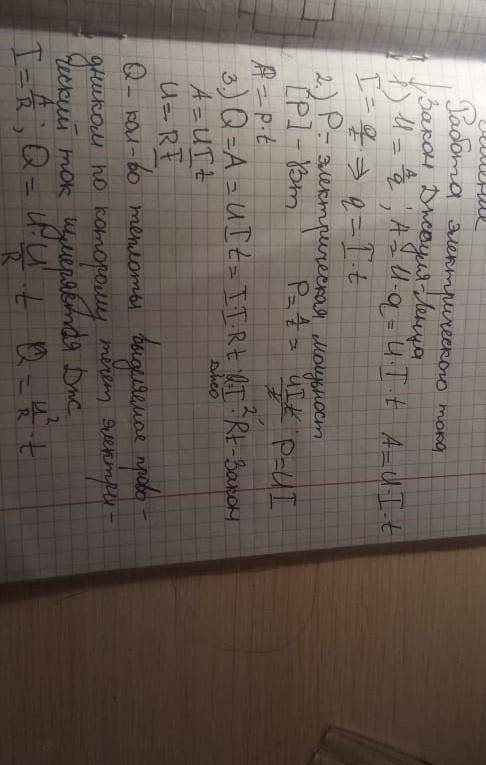 Работа электрического тока
Закон Джоуля-Ленца
1) U = A/q ; A = U·q = U·I·t A = U·I·t
I = q/t ⇒ q = I·t
2.) P - электрическая мощност
[P] - Вт P = A/t = UIt/t ; P = UI
A = P·t
3) Q = A = UIt = I·I·Rt = I²·Rt - Закон
A = UIt
U = RI
Q - кол-во теплоты выделяемое прово-
дником по которому течет электри-
ческий ток измеряется Дж
I = A/R ; Q = U·U/R · t Q = U²/R · t